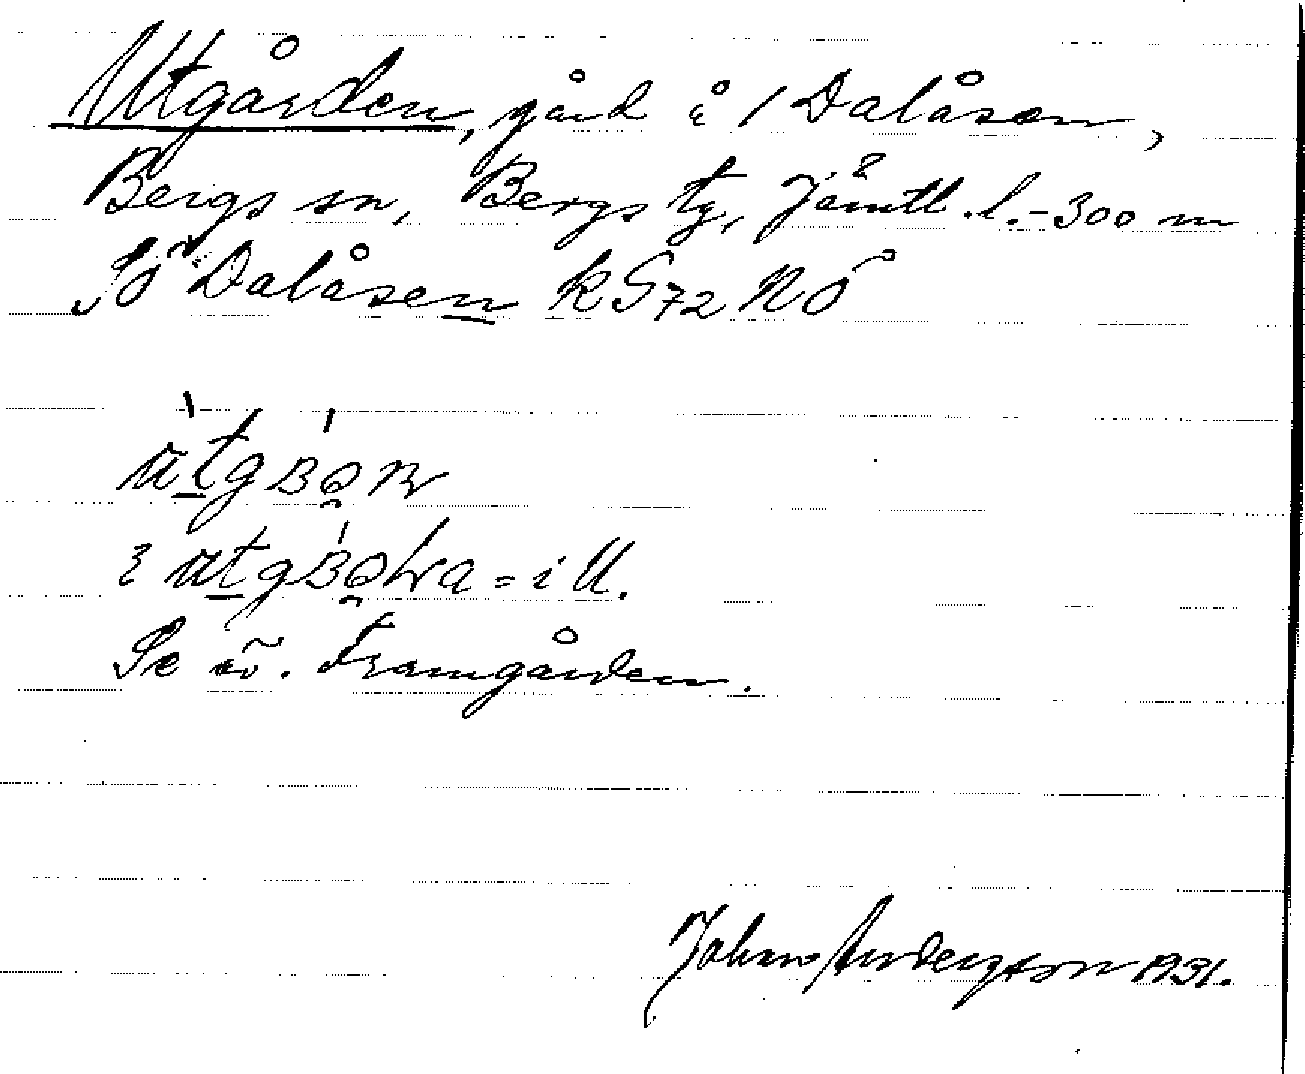 Utgården, gård å 1 Dalåsen,
Bergs sn, Bergs tg, Jämtl. l. - 300 m
SÖ Dalåsen k S72 NÖ
i U.
Se äv. Framgården.
Johans Andersson 1931.